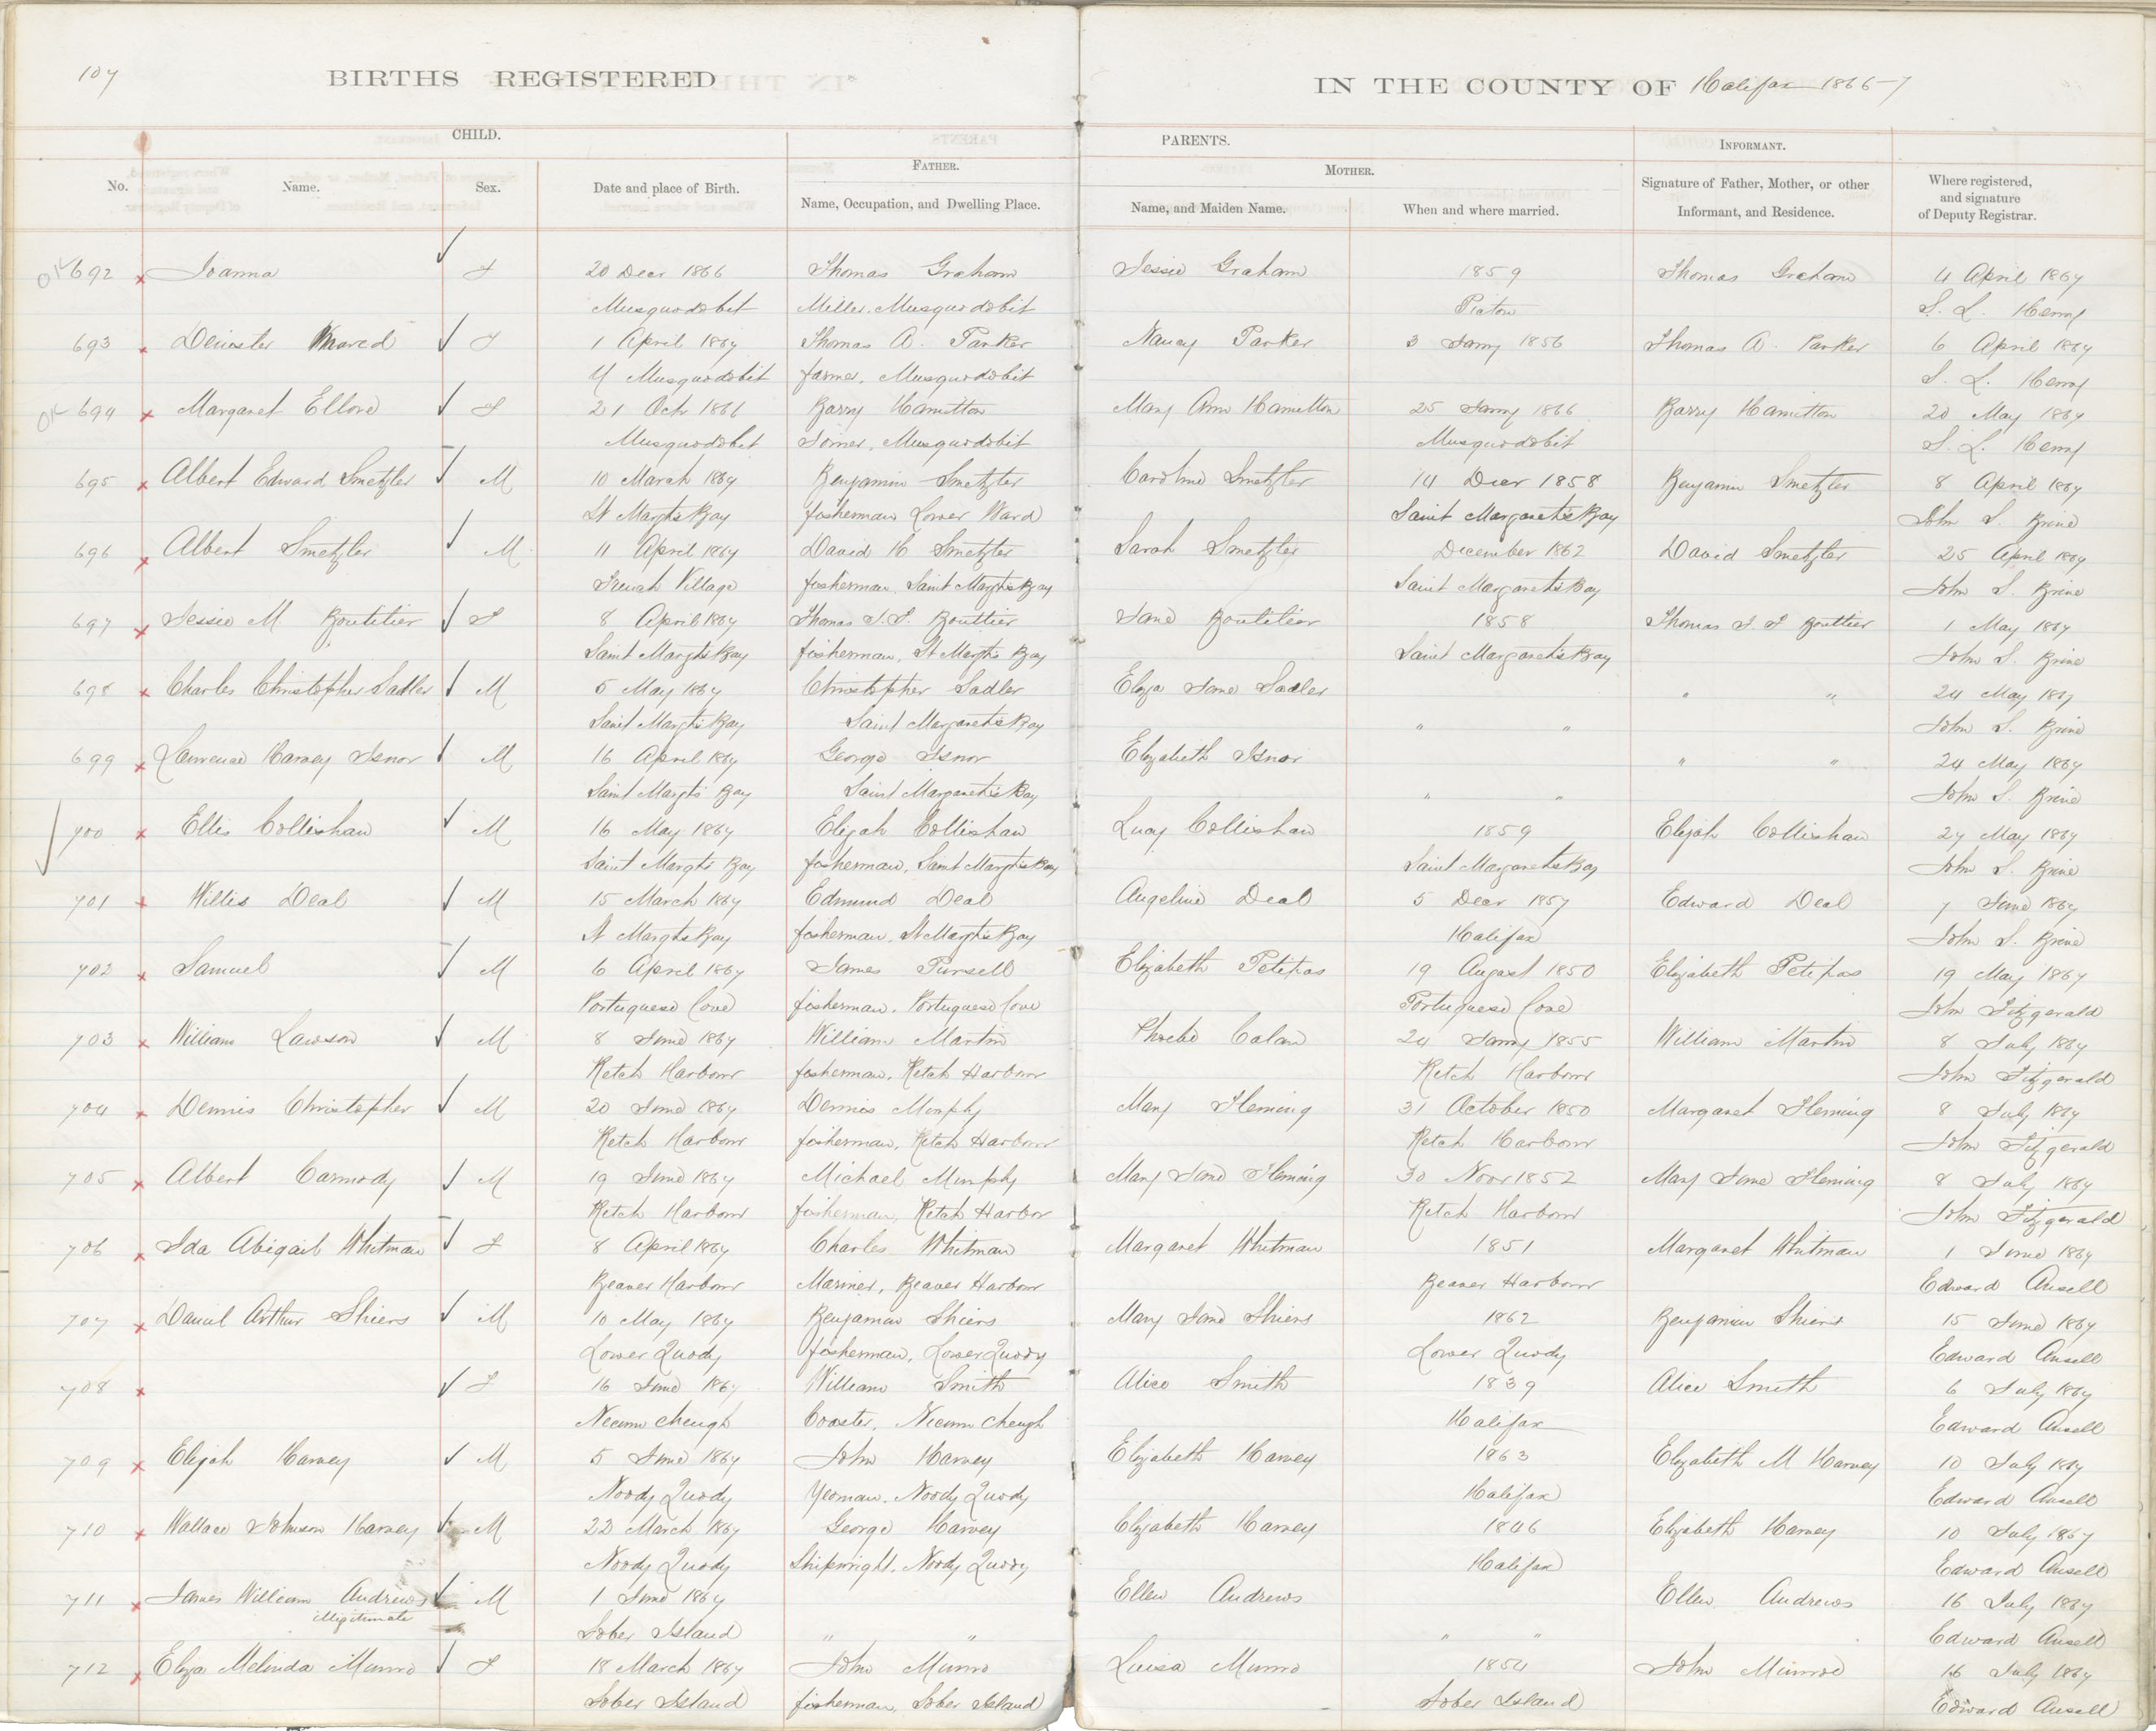 107
BIRTHS REGISTERED IN THE COUNTY OF Halifax 1866-7
CHILD. PARENTS. INFORMANT.
FATHER. MOTHER.
No. Name. Sex. Date and place of Birth. Name, Occupation, and Dwelling Place. Name, and Maiden Name. When and where married. Signature of Father, Mother, or other Informant, and Residence. Where registered, and signature of Deputy Registrar.
OK 692 Joanna F 20 Decr 1866 Thomas Graham Jessie Graham 1859 Thomas Graham 4 April 1867
Musquodobit Miller. Musquodobit Picton S. L. Henry
693 F 1 April 1867 Thomas A. Parker Nancy Parker 3 Jany 1856 Thomas A. Parker 6 April 1867
U Musquodobit farmer, Musquodobit S. L. Henry
OK 694 Margaret F 21 Octr 1866 Barry Hamilton Mary Ann Hamilton 25 Jany 1866 Barry Hamilton 20 May 1867
Musquodobit Musquodobit Musquodobit S. L. Henry
695 Albert Edward Smetzler M 10 March 1867 Benjamin Smetzler Caroline Smetzler 14 Decr 1858 Benjamin Smetzler 8 April 1867
St Margts Bay fisherman Lower Ward Saint Margarets Bay John S. Brine
696 Albert Smetzler M 11 April 1867 David H Smetzler Sarah Smetzler December 1862 David Smetzler 25 April 1867
French Village fisherman, Saint Margts Bay Saint Margarets Bay John S. Brine
697 Jessie M. Boutilier F 8 April 1867 Thomas J. F. Bouttier Jane Boutilier 1858 Thomas J. F Bouttier 1 May 1867
Saint Margts Bay fisherman, St Margts Bay Saint Margarets Bay John S. Brine
698 Charles Christopher Sadler M 5 May 1867 Christopher Sadler Eliza Jane Sadler " " 24 May 1867
Saint Margts Bay Saint Margarets Bay " " John S. Brine
699 Lawrence Harvey Isnor M 16 April 1867 George Isnor Elizabeth Isnor " " 24 May 1867
Saint Margts Bay Saint Margarets Bay " " John S. Brine
700 Ellis Collishaw M 16 May 1867 Elijah Collishaw Lucy Collishaw 1859 Elijah Collishaw 27 May 1867
Saint Margts Bay fisherman, Saint Margts Bay Saint Margarets Bay John S. Brine
701 Willis Deal M 15 March 1867 Edmund Deal Angeline Deal 5 Decr 1857 Edward Deal 7 June 1867
St Margts Bay fisherman, St Margts Bay Halifax John S. Brine
702 Samuel M 6 April 1867 James Pursell Elizabeth Petipas 19 August 1850 Elizabeth Petipas 19 May 1867
Portuguese Cove fisherman, Portuguese Cove Portuguese Cove John Fitzgerald
703 William Lawson M 8 June 1867 William Martin Phoebe Calan 24 Jany 1855 William Martin 8 July 1867
Ketch Harbour fisherman, Ketch Harbour Ketch Harbour John Fitzgerald
704 Dennis Christopher M 20 June 1867 Dennis Murphy Mary Fleming 31 October 1850 Margaret Fleming 8 July 1867
Ketch Harbour fisherman, Ketch Harbour Ketch Harbour John Fitzgerald
705 Albert Carmody M 19 June 1867 Michael Murphy Mary Jane Fleming 30 Novr 1852 Mary Jane Fleming 8 July 1867
Ketch Harbour fisherman, Ketch Harbor Ketch Harbour John Fitzgerald
706 Ida Abigail Whitman F 8 April 1867 Charles Whitman Margaret Whitman 1851 Margaret Whitman 1 June 1867
Beaver Harbour Mariner, Beaver Harbour Beaver Harbour Edward Ansell
707 Daniel Arthur Shiers M 10 May 1867 Benjaman Shiers Mary Jane Shiers 1862 Benjamin Shiers 15 June 1867
Lower Quody fisherman, Lower Quody Lower Quody Edward Ansell
708 F 16 June 1867 William Smith Alice Smith 1839 Alice Smith 6 July 1867
Necum cheugh Coaster, Necum cheugh Halifax Edward Ansell
709 Elijah Harvey M 5 June 1867 John Harvey Elizabeth Harvey 1863 Elizabeth M Harvey 10 July 1867
Noody Quody Yeoman, Noody Quody Halifax Edward Ansell
710 Wallace Johnson Harvey M 22 March 1867 George Harvey Elizabeth Harvey 1846 Elizabeth Harvey 10 July 1867
Noody Quody Shipwright, Noody Quody Halifax Edward Ansell
711 James William Andrews M 1 June 1867 Ellen Andrews Ellen Andrews 16 July 1867
illegitimate Sober Island " " " " Edward Ansell
712 Eliza Melinda Munro F 18 March 1867 John Munro Luisa Munro 1854 John Munroe 16 July 1867
Sober Island fisherman, Sober Island Sober Island Edward Ansell